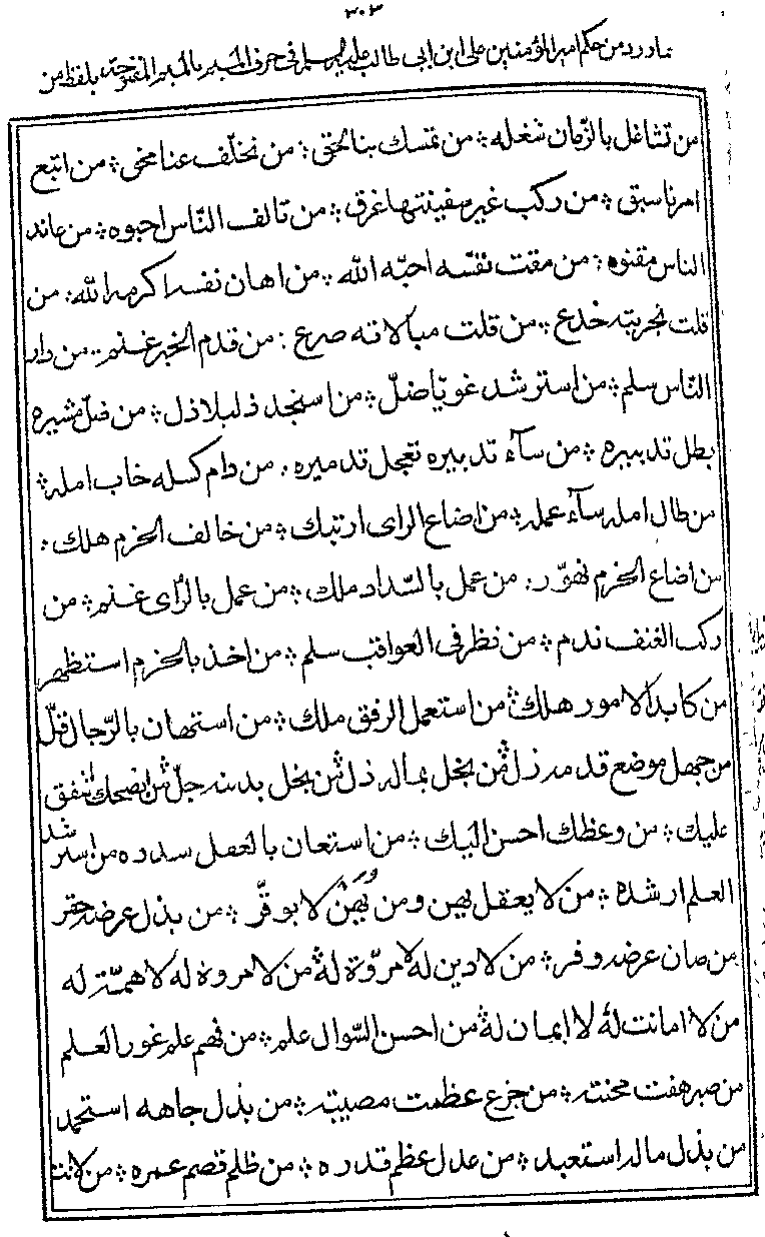 ٣٠٣
مما ورد من حكم امير المؤمنين على ابن ابى طالب عليه السلم فى حرف الميم بالميم المفتوحة بلفظ من
من تشاغل بالزمان شغله ؞ من تمسك بنا لحق ؞ من تخلّف عنا محق ؞ من اتبع
امرنا سبق ؞ من ركب غير سفينتها غرق ؞ من تالف النّاس احبوه ؞ من عاند
الناس مقتوه ؞ من مقت نفسه احبّه الله ؞ من اهان نفسه اكرمه الله ؞ من
قلت تجربته خدع ؞ من قلت مبالاته صرع ؞ من قدم الخير غنم ؞ من دارى
النّاس سلم ؞ من استرشد غويّا ضلّ ؞ من استنجد ذليلا ذل ؞ من ضلّ مشيره
بطل تدبيره ؞ من سآء تدبيره تعجل تدميره ؞ من دام كسله خاب امله ؞
من طال امله سآء عمله ؞ من اضاع الراى ارتبك ؞ من خالف الحزم هلك ؞
من اضاع الحزم تهوّر ؞ من عمل بالسّداد ملك ؞ من عمل بالرّأى غنم ؞ من
ركب العنف ندم ؞ من نظر فى العواقب سلم ؞ من اخذ بالحزم استظهر
من كابد الامور هلك ؞ من استعمل الرفق ملك ؞ من استهان بالرّجال قلّ
من جهل موضع قدمه زل ؞ من بخل بماله ذل ؞ من بخل بدينه جلّ ؞ من اضحك اشفق
عليك ؞ من وعظك احسن اليك ؞ من استعان بالعقل سدده من استرشد
العلم ارشده ؞ من لا يعقل يهن ومن يَهُنْ لا يوقّر ؞ من بذل عرضه حقر
من صان عرضه وقر ؞ من لا دين له لا مروّة له ؞ من لا مروة له لا همّة له
من لا امانت له لا ايمان له ؞ من احسن السّوال علم ؞ من فهم علم غور العلم
من صبر هفت محنته ؞ من جزع عظمت مصيبته ؞ من بذل جاهه استحمد
من بذل ماله استعبد ؞ من عدل عظم قدره ؞ من ظلم قصم عمره ؞ من لانت